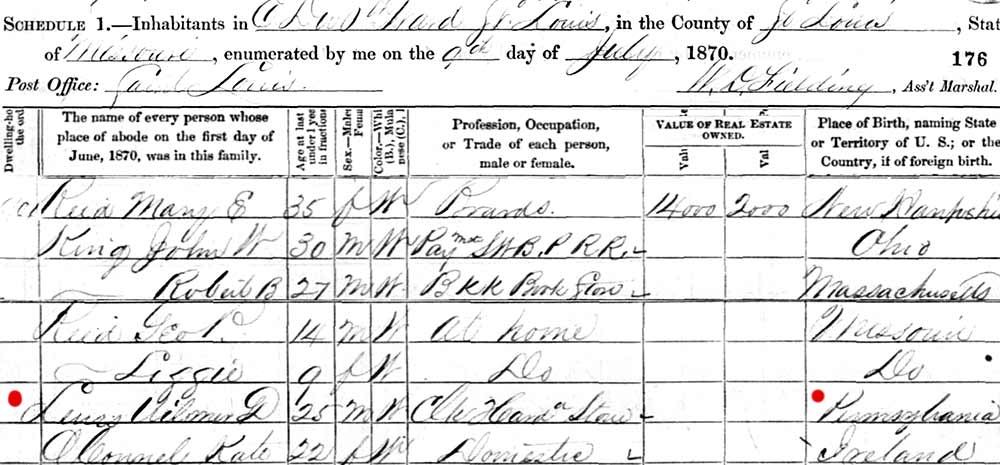 SCHEDULE 1.—Inhabitants in Ward St. Louis, in the County of St Louis, Stat
of Missouri, enumerated by me on the 9th day of July, 1870.
176
Post Office: Saint Louis. W. D. Fielding, Ass't Marshal.
Dwelling-ho
the ord
The name of every person whose
place of abode on the first day of
June, 1870, was in this family.
Age at last
under 1 yea
in fractions
Sex.—Males
Fema
Color.—Whi
(B.), Mula
nese (C.), I
Profession, Occupation,
or Trade of each person,
male or female.
VALUE OF REAL ESTATE
OWNED.
Val
Val
Place of Birth, naming State
or Territory of U. S.; or the
Country, if of foreign birth.
Reid Mary E 35 f W Boards. 14000 2000 New Hampshi
King John W 30 M W Pay Mst S W B. P R R. Ohio
— Robert B 27 M W B K K Book Store Massachusetts
Reid Geo 14 M W At home Missouri
— Lizzie 9 f W Do Do
Wilmer D 25 M W Clk Hard Store Pennsylvania
O Connel Kate 22 f W Domestic Ireland